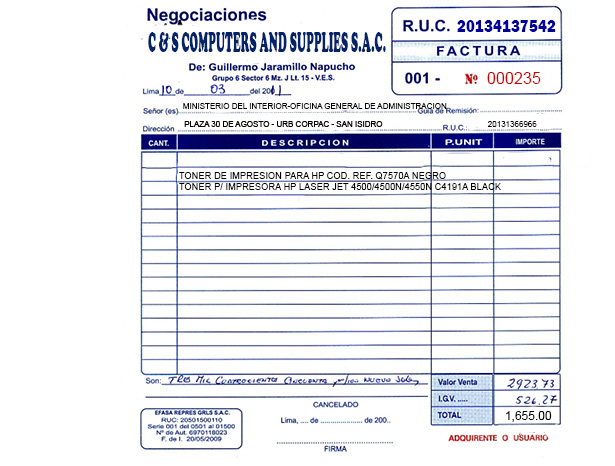 Negociaciones
C & S COMPUTERS AND SUPPLIES S.A.C.
De: Guillermo Jaramillo Napucho
Grupo 6 Sector 6 Mz. J Lt. 15 - V.E.S.
R.U.C. 20134137542
FACTURA
001 - Nº 000235
Lima 10 de 03 del 2011
Señor (es) MINISTERIO DEL INTERIOR-OFICINA GENERAL DE ADMINISTRACION Guía de Remisión:
Dirección PLAZA 30 DE AGOSTO - URB CORPAC - SAN ISIDRO R.U.C.: 20131366966
CANT. DESCRIPCION P.UNIT IMPORTE
TONER DE IMPRESION PARA HP COD. REF. Q7570A NEGRO
TONER P/ IMPRESORA HP LASER JET 4500/4500N/4550N C4191A BLACK
Son: Tres Mil Cuatrocientos Cincuenta y 00/100 Nuevo Soles
Valor Venta 2923.73
I.G.V. ..... 526.27
TOTAL 1,655.00
CANCELADO
Lima, .... de ...................... de 200..
FIRMA
EFASA REPRES GRLS S.A.C.
RUC: 20501500110
Serie 001 del 0501 al 01500
Nº de Aut. 6970118023
F. de I. 20/05/2009
ADQUIRENTE O USUARIO